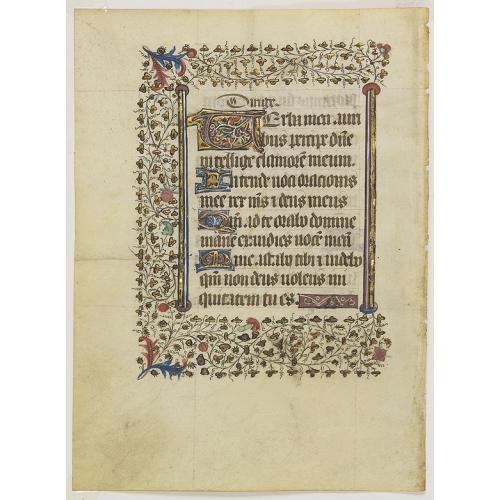 Dirige.
Verba mea auri
bus percipe dñe
intellige clamorẽ meum.
Intende voci orationis
mee rex ms̃ z deus meus
Qm̃. ad te orabo domine
mane exaudies vocẽ meã
Mane astabo tibi z videbo
qm̃ non deus volens ini
quitatem tu es.